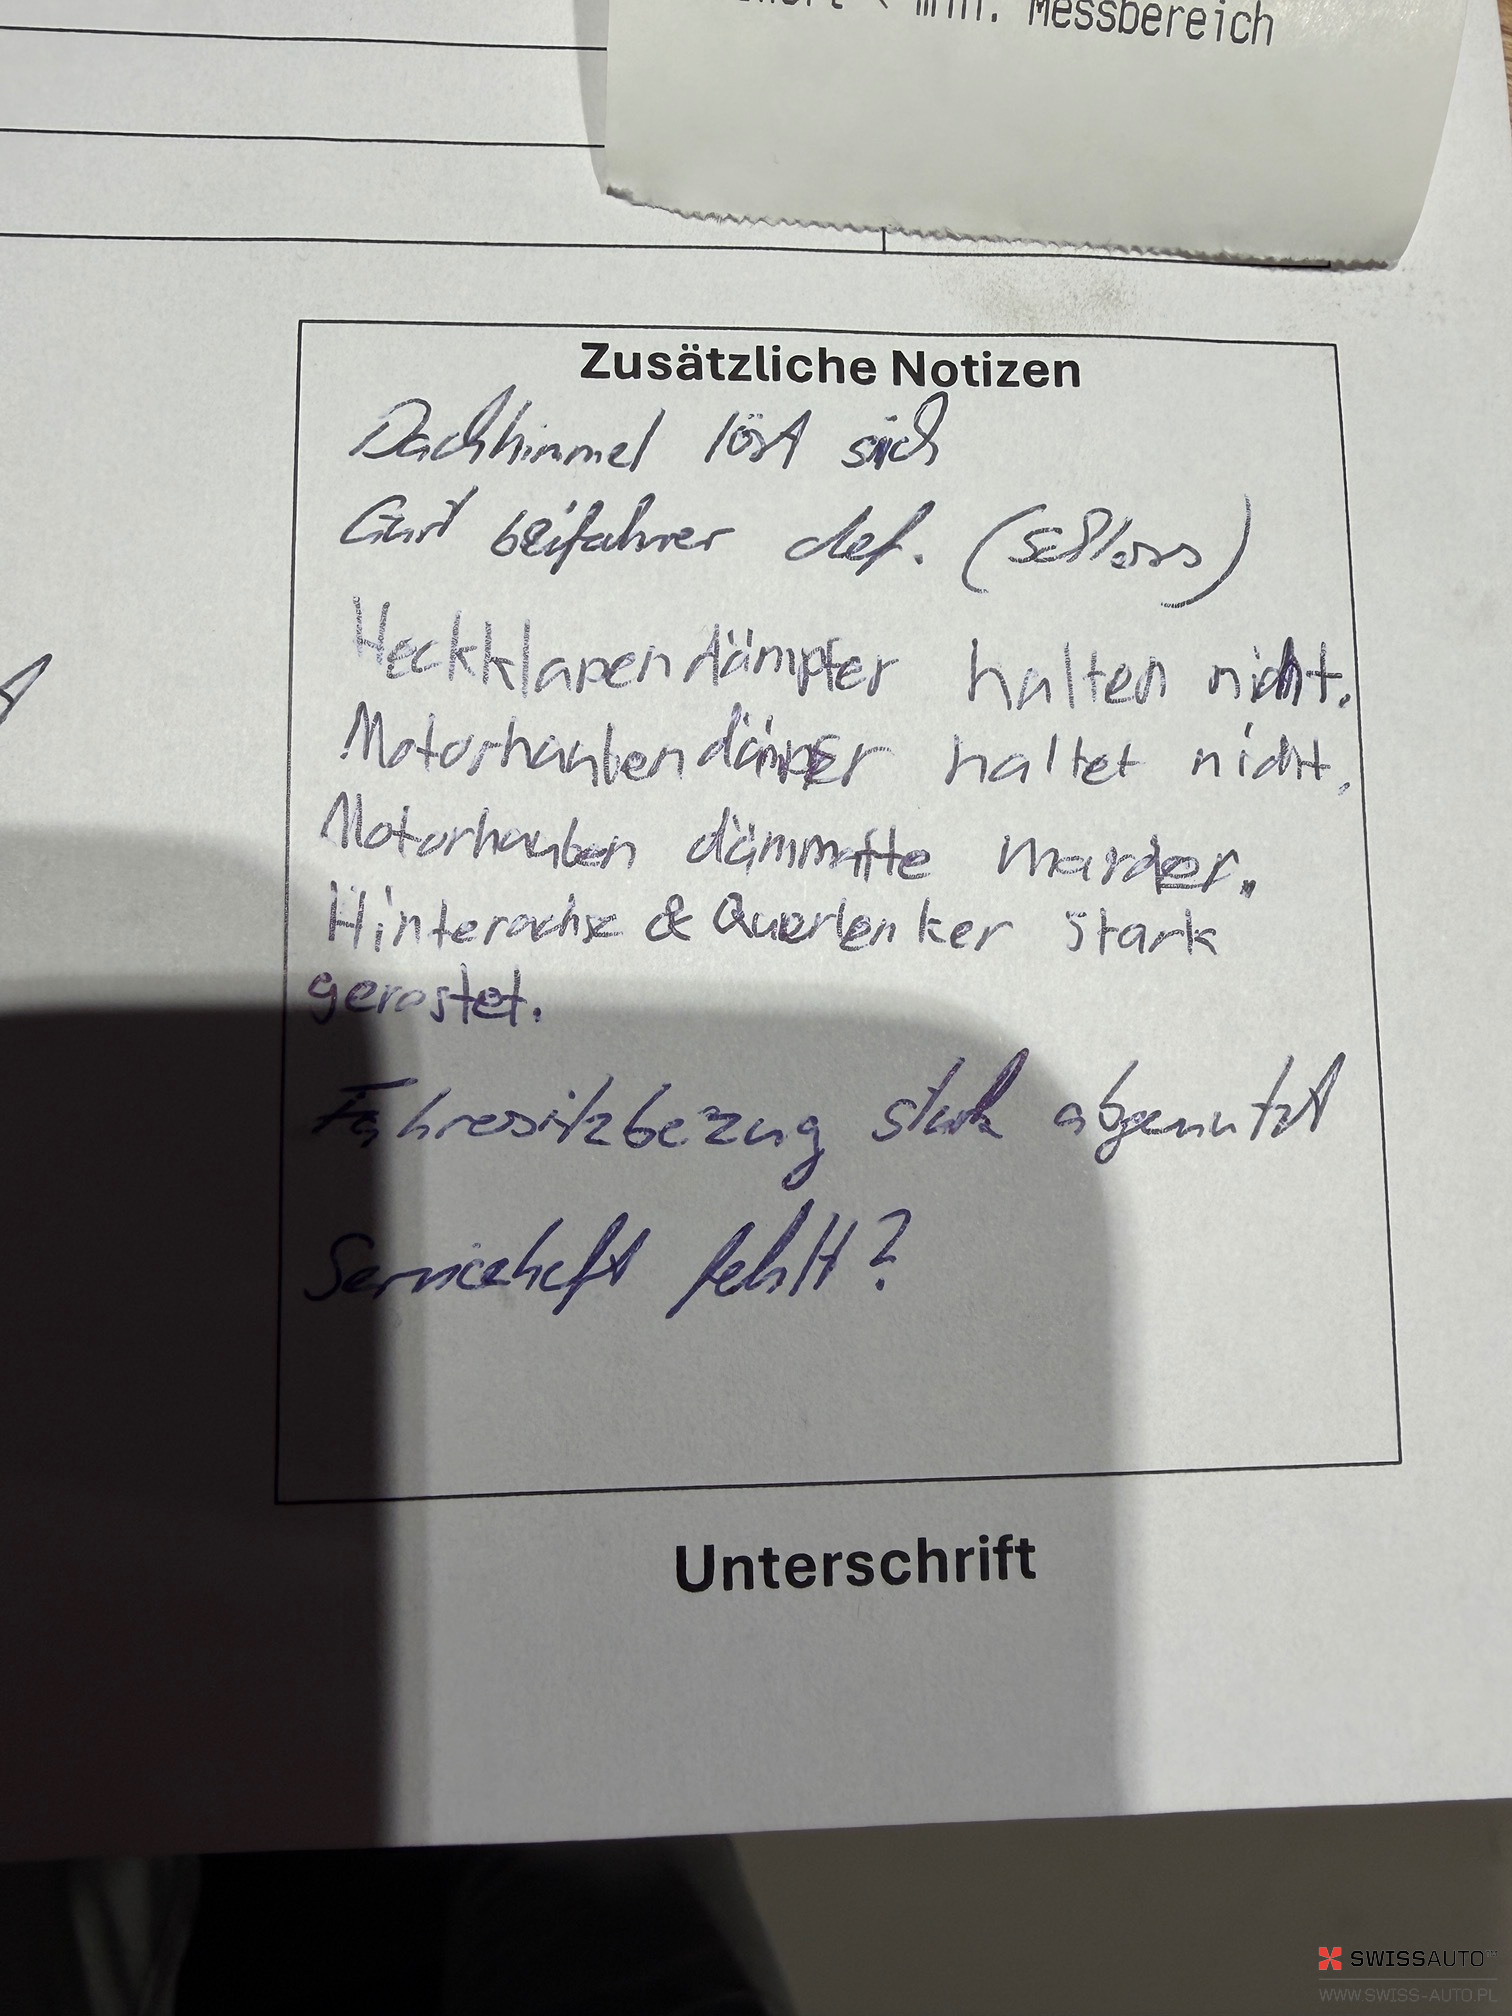 min. Messbereich
Zusätzliche Notizen
Dachhimmel löst sich
Gurt beifahrer def. (Schloss)
Heckklapendämpfer halten nicht.
Motorhaubendämpfer haltet nicht.
Motorhauben dämmatte marder.
Hinterachse & Querlenker stark
gerostet.
Fahrersitzbezug stark abgenutzt
Serviceheft fehlt?
Unterschrift
SWISSAUTO
WWW.SWISS-AUTO.PL